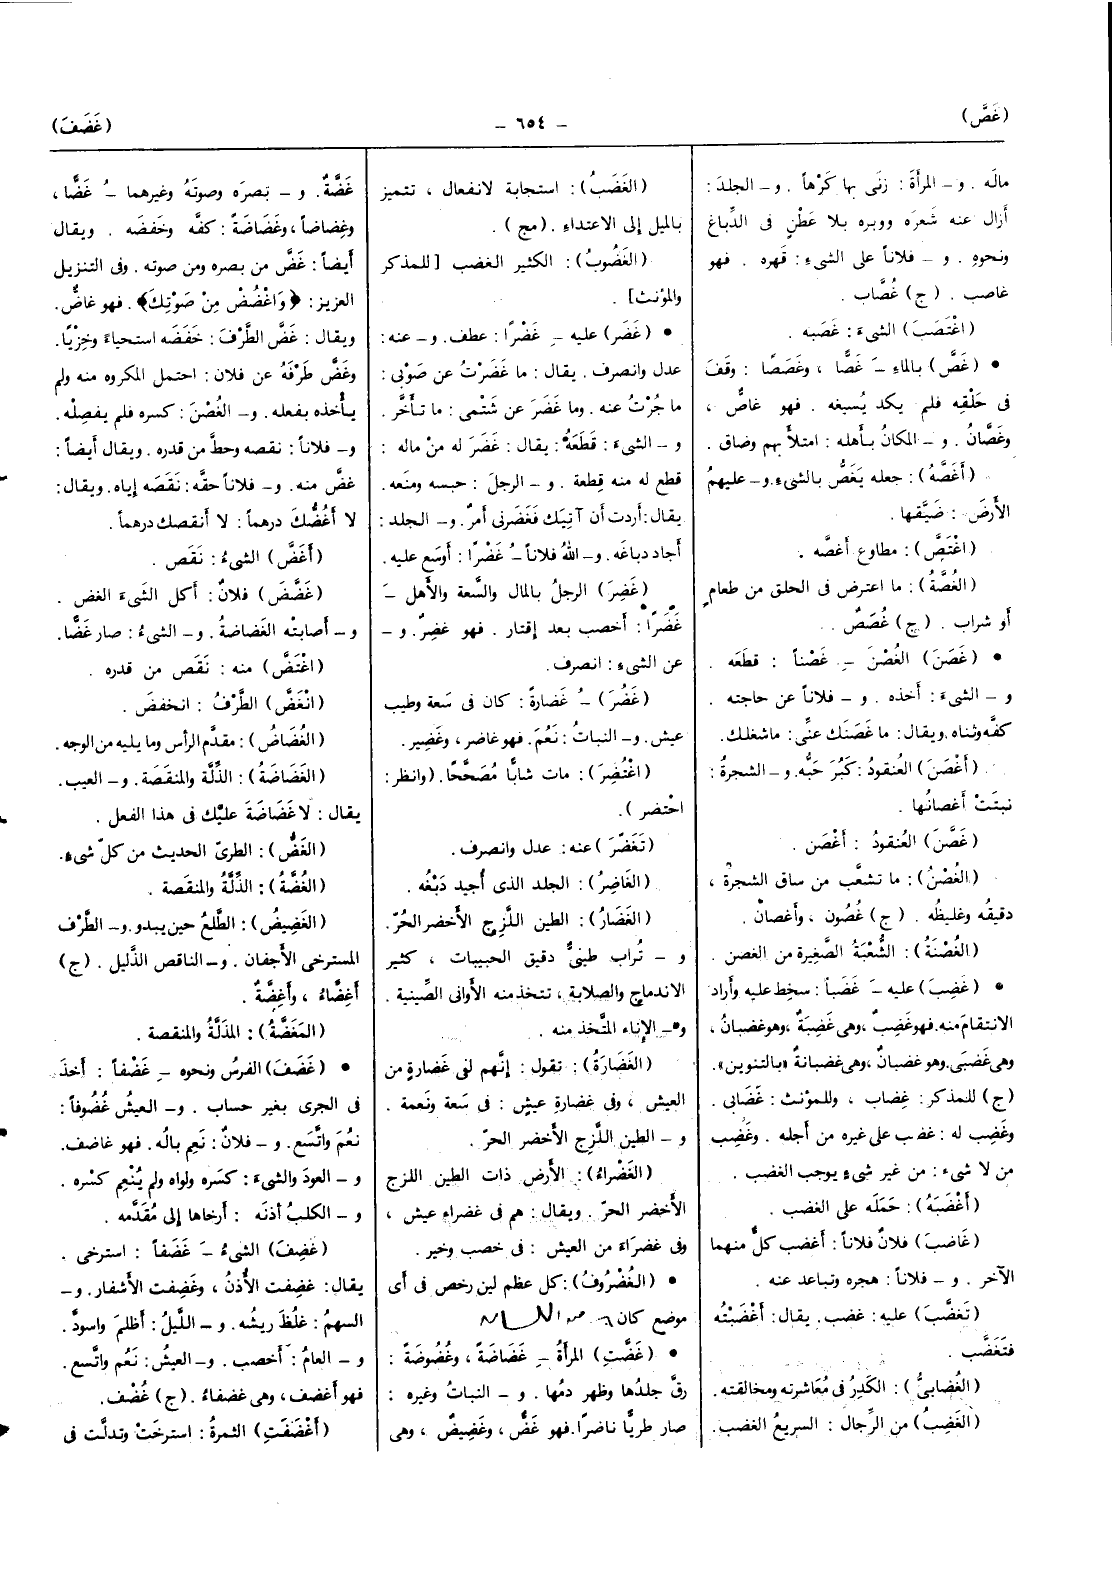 (غَصَّ)
– ٦٥٤ –
(غَضَفَ)
مالَه . و – المرأةَ : زنَى بها كَرْهاً . و – الجلدَ :
أزال عنه شَعرَه ووبره بلا عَطْنٍ فى الدِّباغ
ونحوِهِ . و – فلاناً على الشىءِ : قهره . فهو
غاصب . (ج) غُصَّاب .
(اغْتَصَبَ) الشىءَ : غَصَبه .
• (غَصَّ) بالماءِ ـَ غَصًّا ، وغَصَصًا : وقَفَ
فى حَلْقِه فلم يكد يُسيغه . فهو غاصٌّ ،
وغَصَّانُ . و – المكانُ بأَهله : امتلأ بهم وضاق .
(أَغَصَّهُ) : جعله يَغَصُّ بالشىءِ. و– عليهمُ
الأَرضَ : ضَيَّقها .
(اغْتَصَّ) : مطاوع أغصَّه .
(الغُصَّةُ) : ما اعترض فى الحلق من طعامٍ
أو شراب . (ج) غُصَصٌ .
• (غَصَنَ) الغُصْنَ ـِ غَصْناً : قطَعَه .
و – الشىءَ : أخذه . و – فلاناً عن حاجته .
كفَّه وثناه. ويقال: ما غَصَنَك عنِّى: ماشغلك.
(أَغْصَنَ) العنقودُ : كَبُرَ حَبُّه. و – الشجرةُ :
نبتَتْ أغصانُها .
(غَصَّنَ) العُنقودُ : أَغْصَن .
(الغُصْنُ) : ما تشعَّب من ساق الشجرة ،
دقيقُه وغليظُه . (ج) غُصُون ، وأَغصانٌ .
(الغُصْنَةُ) : الشُّعْبَةُ الصَّغِيرة من الغصن .
• (غَضِبَ) عليه ـَ غَضَباً : سخِط عليه وأَراد
الانتقامَ منه. فهو غَضِبٌ ، وهى غَضِبَةٌ ، وهو غضبانُ ،
وهى غَضبَى. وهو غضبانٌ ، وهى غضبانةٌ «بالتنوين».
(ج) للمذكر : غِضاب ، وللمؤنث : غَضَابى .
وغَضِب له : غضب على غيره من أجله . وغَضِب
من لا شىء : من غير شىءٍ يوجب الغضب .
(أَغْضَبَهُ) : حَمَلَه على الغضب .
(غَاضَبَ) فلانٌ فلاناً : أغضب كلٌّ منهما
الآخر . و – فلاناً : هجره وتباعد عنه .
(تَغضَّبَ) عليه : غضب. يقال : أَغْضَبْتُه
فتَغَضَّب .
(الغُضَابِىُّ) : الكَدِرُ فى مُعَاشرته ومخالقته .
(الغَضِبُ) من الرِّجال : السريعُ الغضب.
(الغَضَبُ) : استجابة لانفعال ، تتميز
بالميل إلى الاعتداءِ . (مج) .
(الغَضُوبُ) : الكثير الغضب [للمذكر
والمؤنث] .
• (غَضَر) عليه ـِ غَضْرًا : عطف. و – عنه :
عدل وانصرف . يقال : ما غَضَرْتُ عن صَوْبى :
ما جُرْتُ عنه. وما غَضَرَ عن شَتْمى : ما تأَخَّر .
و – الشىءَ : قَطَعَهُ : يقال : غَضَرَ له منْ ماله :
قطع له منه قِطعة . و – الرجلَ : حبسه ومنَعه.
يقال: أردت أن آتيَك فَغَضَرنى أمرٌ. و– الجلد :
أجاد دباغَه. و– اللهُ فلاناً ـُ غَضْرًا : أَوسَع عليه.
(غَضِرَ) الرجلُ بالمال والسَّعة والأَهل ـَ
غَضَرًا : أخصب بعد إقتار . فهو غضِرٌ. و –
عن الشىءِ : انصرف.
(غَضُرَ) ـُ غَضارةً : كان فى سَعة وطيب
عيش. و– النباتُ : نَعُمَ. فهو غاضر ، وغَضِير .
(اغْتُضِرَ) : مات شابًّا مُصَحَّحًا. (وانظر :
احْتضر ) .
(تَغَضَّرَ )عنه : عدل وانصرف .
(الغَاضِرُ) : الجلد الذى أُجيد دَبْغُه .
(الغَضَارُ) : الطين اللَّزِج الأَخضر الحُرّ.
و – تُراب طينىٌّ دقيق الحبيبات ، كثير
الاندماج والصلابة ، تتخذ منه الأَوانى الصِّينية .
و– الإناءُ المتَّخذ منه .
(الغَضَارَةُ) : تقول : إنَّهم لفى غَضارةٍ من
العيش ، وفى غضارةِ عيشٍ : فى سَعة ونَعمة .
و – الطين اللَّزج الأَخضر الحرّ .
(الغَضْراءُ) : الأَرض ذات الطين اللزج
الأَخضر الحرّ . ويقال : هم فى غضراءِ عيش ،
وفى غضرَاءَ من العيش : فى خصب وخير .
• (الغُضْرُوفُ) : كل عظم لين رخص فى أى
موضع كان
• (غَضَّتِ) المرأةُ ـِ غَضَاضَةً ، وغُضُوضَةً :
رقَّ جلدُها وظهر دمُها . و – النباتُ وغيره :
صار طريًّا ناضرًا. فهو غَضٌّ ، وغَضِيضٌ ، وهى
غَضَّةٌ . و – بَصرَه وصوتَهُ وغيرهما ـُ غَضًّا ،
وغِضاضاً ، وغَضَاضَةً : كفَّه وخَفضَه . ويقال
أيضاً : غَضَّ من بصره ومن صوته . وفى التنزيل
العزيز : ﴿وَاغْضُضْ مِنْ صَوْتِكَ﴾ . فهو غاضٌّ.
ويقال : غَضَّ الطَّرْفَ : خَفَضَه استحياءً وخِزْيًا.
وغَضَّ طَرْفَهُ عن فلان : احتمل المكروه منه ولم
يأْخذه بفعله . و– الغُصْنَ : كسره فلم يفصِلْه .
و– فلاناً : نقصه وحطَّ من قدره . ويقال أيضاً :
غضَّ منه. و– فلاناً حقَّه : نَقَصَه إياه. ويقال :
لا أَغُضُّكَ درهماً : لا أنقصك درهماً .
(أَغَضَّ) الشىءُ : نَقَص .
(غَضَّضَ) فلانٌ : أكل الشىءَ الغض .
و – أصابتْه الغَضاضةُ . و– الشىءُ : صار غَضًّا.
(اغْتَضَّ) منه : نَقَص من قدره .
(انْغَضَّ) الطَّرْفُ : انخفضَ .
(الغُضَاضُ) : مقدَّم الرأس وما يليه من الوجه.
(الغَضَاضَةُ) : الذِّلَّة والمنقَصَة. و– العيب.
يقال : لا غَضَاضَةَ عليْك فى هذا الفعل .
(الغَضُّ) : الطرىّ الحديث من كلّ شىءٍ.
(الغُضَّةُ) : الذِّلَّةُ والمنقَصة .
(الغَضِيضُ) : الطَّلعُ حين يبدو. و– الطَّرْف
المسترخى الأَجفان . و– الناقص الذَّليل . (ج)
أَغِضَّاءُ ، وأَغِضَّةٌ .
(المَغَضَّةُ) : المَذَلَّةُ والمنقصة .
• (غَضَفَ) الفرسُ ونحوه ـِ غَضْفاً : أَخذَ
فى الجرى بغير حساب . و– العيشُ غُضُوفاً :
نعُمَ واتَّسع . و – فلانٌ : نَعِم بالُه. فهو غاضف.
و – العودَ والشىءَ : كسَره ولواه ولم يُنْعِم كسْره .
و – الكلبُ أذنَه : أرخاها إلى مُقدَّمه .
(غَضِفَ) الشىءُ ـَ غَضَفاً : استرخى .
يقال : غضِفت الأُذنُ ، وغَضِفت الأَشفار. و –
السهمُ : غلُظَ ريشُه. و – اللَّيلُ : أَظلمَ واسودَّ .
و – العامُ : أخصب . و– العيشُ : نَعُم واتَّسع .
فهو أغضف ، وهى غضفاءُ . (ج) غُضْف.
(أَغْضَفَتِ) الثمرةُ : استرختْ وتدلَّت فى